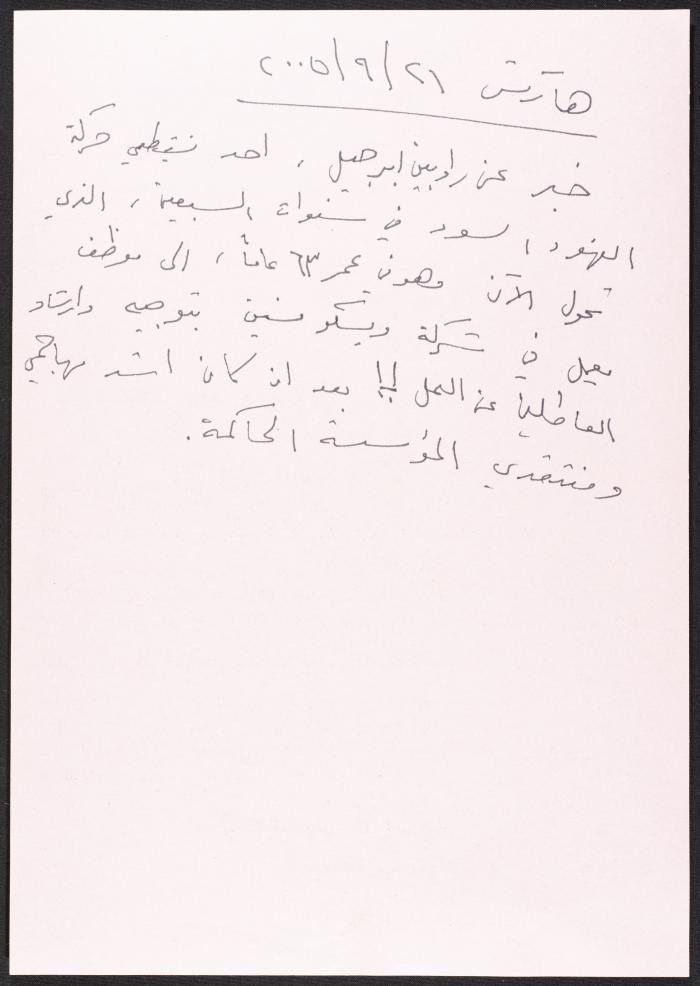 هآرتس ٢١/٩/٢٠٠٥
خبر عن راوبين ابرجيل، احد نشيطي حركة
الفهود السود في سنوات السبعين، الذي
تحول الآن وهو في عمر ٦٣ عاماً، الى موظف
يعمل في شركة ويسكونسين بتوجيه وارشاد
العاطلين عن العمل !! بعد ان كان اشد مهاجمي
ومنتقدي المؤسسة الحاكمة.